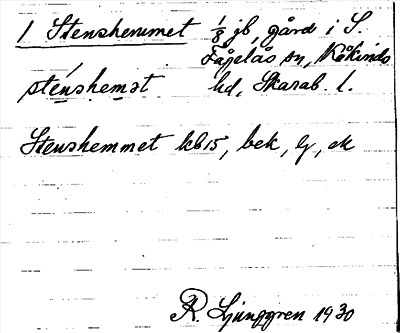 1 Stenshemmet 1/8 jb, gård i S.
Fågelås sn, Kåkinds
sténshemət hd, Skarab. l.
Stenshemmet kb15, bek, lj, ak
R. Ljunggren 1930